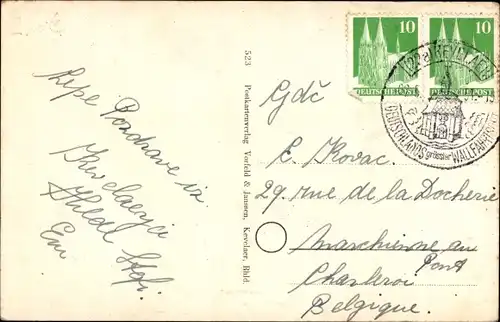 Lepe Pozdrave iz
Kevelaerja
Hilde Stefi
Emi
523 Postkartenverlag Vorfeld & Janssen, Kevelaer, Rhld.
10
DEUTSCHE POST
10
DEUTSCHE POST
(22a) KEVELAER
DEUTSCHLANDS grösster WALLFAHRTSORT
Gdč
E. Kovac.
29. rue de la Docherie
Marchienne au
Pont
Charleroi
Belgique.